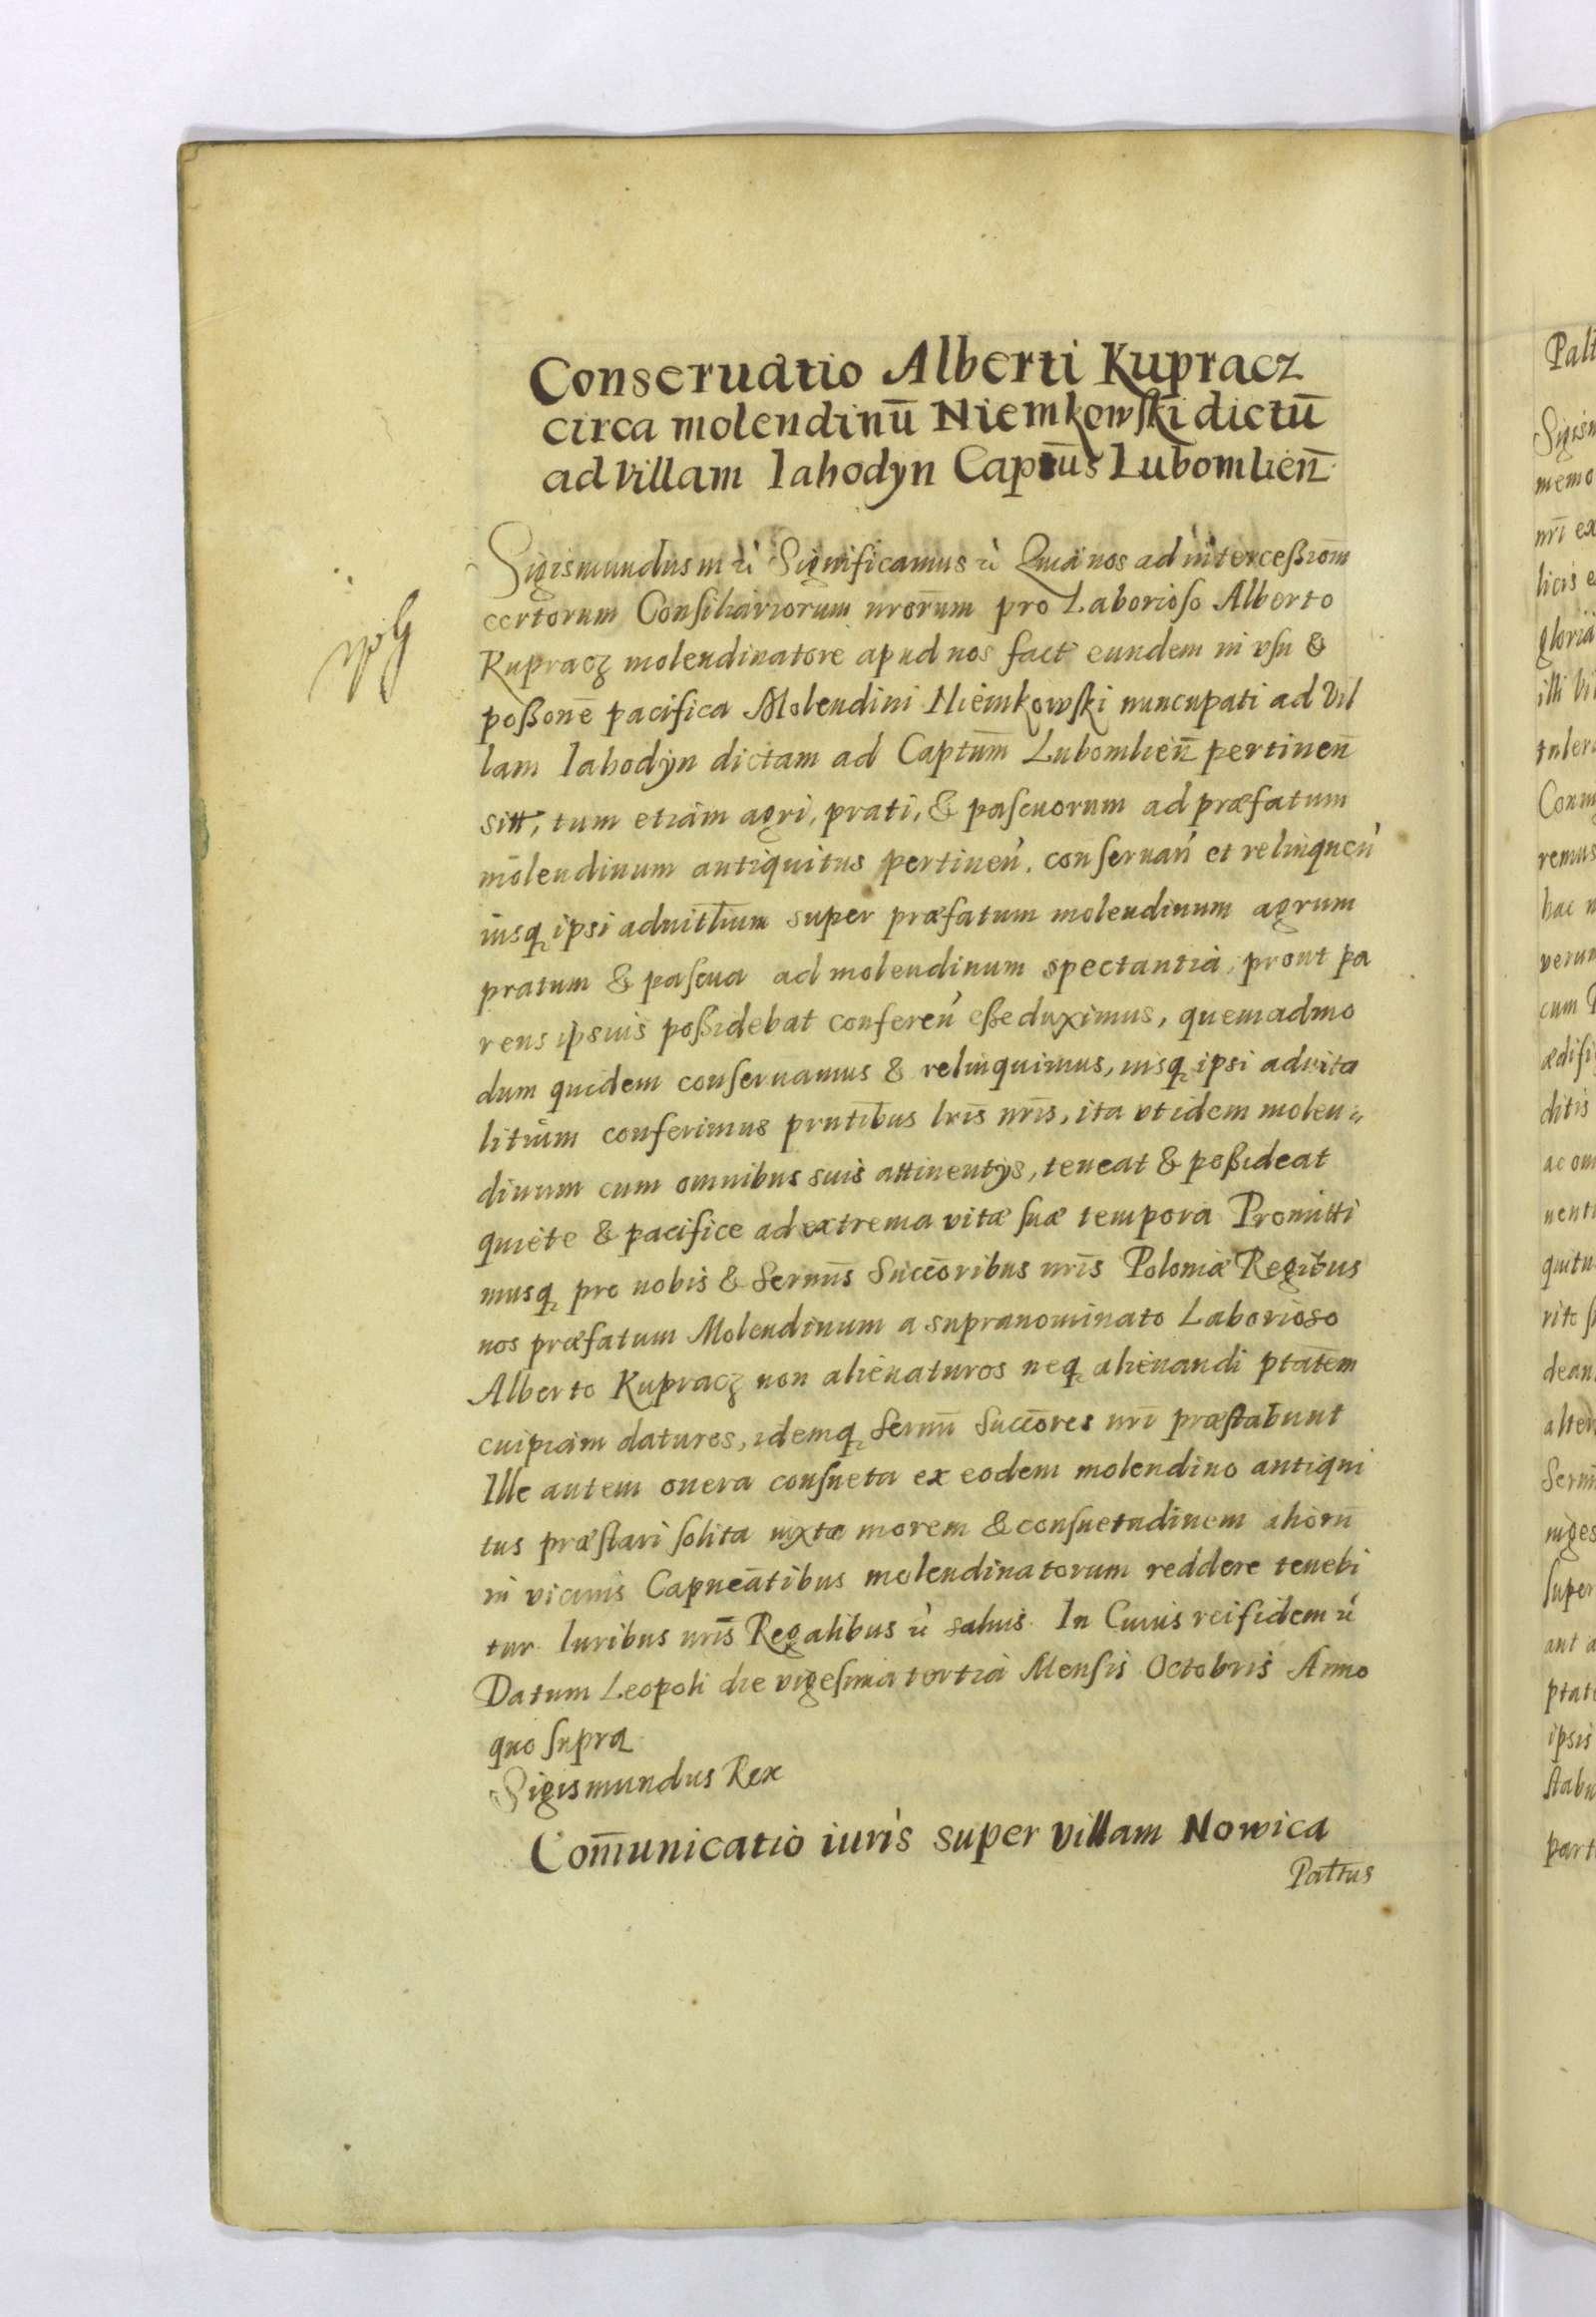 Conseruatio Alberti Kupracz
circa molendinū Niemkowski dictū
ad villam Iahodyn Captūs Lubomlien̄
Sigismundus m ĕ Significamus ĕ Quia nos ad intercessiom̄
certorum Consiliariorum nrōrum pro Laborioso Alberto
Kupracz molendinatore apud nos fact eundem in vsu &
possonē pacifica Molendini Niemkowski nuncupati ad Vil
lam Iahodyn dictam ad Captūm Lubomlien̄ pertinen̄
sitt, tum etiam agri, prati, & pascuorum ad præfatum
molendinum antiquitus pertineń. conseruań et relinqueń
iusq ipsi aduitlium super præfatum molendinum agrum
pratum & pascua ad molendinum spectantia, prout pa
rens ipsius possidebat confereń esse duximus, quemadmo
dum quidem conseruamus & relinquimus, iusq ipsi aduita
litium conferimus pn̄tibus lrīs nrīs, ita vt idem molen„
dinum cum omnibus suis attinentÿs, teneat & possideat
quiete & pacifice ad extrema vitæ suæ tempora Promitti
musq pro nobis & Sernm̄s Succōribus nrīs Poloniæ Regibus
nos præfatum Molendinum a supranominato Laborioso
Alberto Kupracz non alienaturos neq alienandi ptātem
cuipiam daturos, idemq Sernm̄ Succōres nrī præstabunt
Ille autem onera consueta ex eodem molendino antiqui
tus præstari solita iuxta morem & consuetudinem aliorū
in vicinis Capneātibus molendinatorum reddere tenebi
tur. Iuribus nrīs Regalibus ĕ saluis. In Cuius rei fidem ĕ
Datum Leopoli die vigesima tertia Mensis Octobris Anno
quo supra
Sigismundus Rex
Com̄unicatio iuris super villam Nowica
Palt̄us